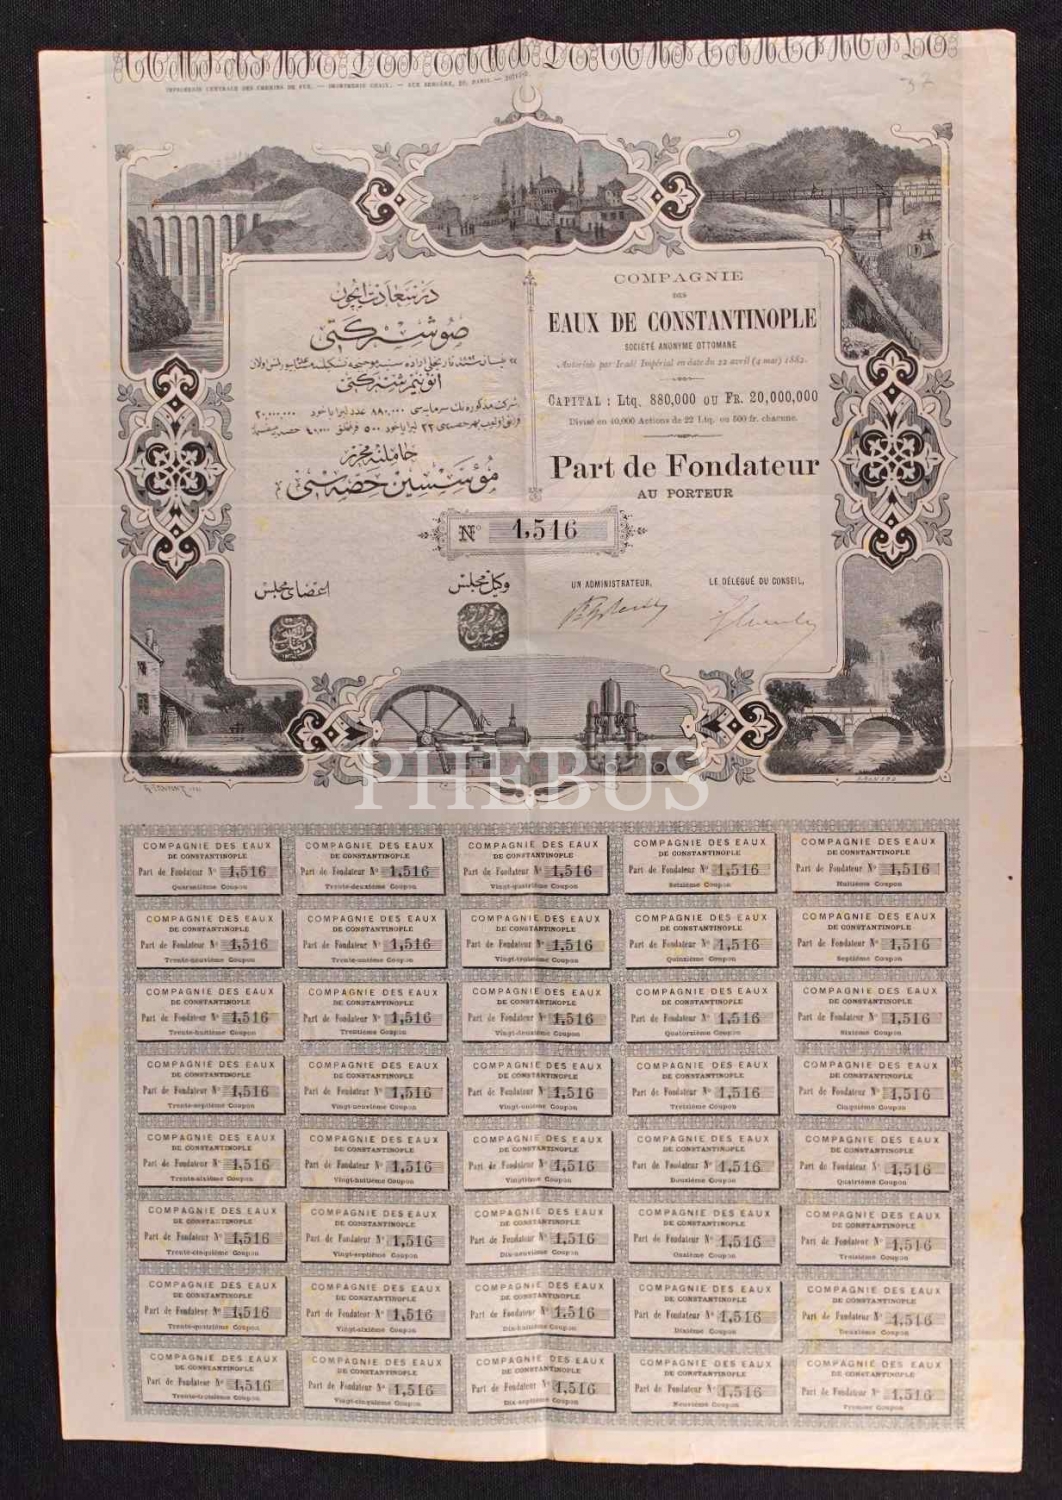 COMPAGNIE DES EAUX DE CONSTANTINOPLE
IMPRIMERIE CENTRALE DES CHEMINS DE FER. — IMPRIMERIE CHAIX. — RUE BERGÈRE, 20, PARIS. —
در سعادت ايچون
صو شركتى
آنونيم شركتى
حاملنه محرر
مؤسسين حصه سى
COMPAGNIE
DES
EAUX DE CONSTANTINOPLE
SOCIÉTÉ ANONYME OTTOMANE
Autorisée par Iradé Impérial en date du 22 avril (4 mai) 1882.
CAPITAL : Ltq. 880,000 OU FR. 20,000,000
Divisé en 40,000 Actions de 22 Ltq. ou 500 fr. chacune.
Part de Fondateur
AU PORTEUR
N° 1,516
اعضاى مجلس
وكيل مجلس
UN ADMINISTRATEUR,
LE DÉLÉGUÉ DU CONSEIL,
PHEBUS
COMPAGNIE DES EAUX
DE CONSTANTINOPLE
Part de Fondateur N° 1,516
Quarantième Coupon
COMPAGNIE DES EAUX
DE CONSTANTINOPLE
Part de Fondateur N° 1,516
Trente-deuxième Coupon
COMPAGNIE DES EAUX
DE CONSTANTINOPLE
Part de Fondateur N° 1,516
Vingt-quatrième Coupon
COMPAGNIE DES EAUX
DE CONSTANTINOPLE
Part de Fondateur N° 1,516
Seizième Coupon
COMPAGNIE DES EAUX
DE CONSTANTINOPLE
Part de Fondateur N° 1,516
Huitième Coupon
COMPAGNIE DES EAUX
DE CONSTANTINOPLE
Part de Fondateur N° 1,516
Trente-neuvième Coupon
COMPAGNIE DES EAUX
DE CONSTANTINOPLE
Part de Fondateur N° 1,516
Trente-unième Coupon
COMPAGNIE DES EAUX
DE CONSTANTINOPLE
Part de Fondateur N° 1,516
Vingt-troisième Coupon
COMPAGNIE DES EAUX
DE CONSTANTINOPLE
Part de Fondateur N° 1,516
Quinzième Coupon
COMPAGNIE DES EAUX
DE CONSTANTINOPLE
Part de Fondateur N° 1,516
Septième Coupon
COMPAGNIE DES EAUX
DE CONSTANTINOPLE
Part de Fondateur N° 1,516
Trente-huitième Coupon
COMPAGNIE DES EAUX
DE CONSTANTINOPLE
Part de Fondateur N° 1,516
Trentième Coupon
COMPAGNIE DES EAUX
DE CONSTANTINOPLE
Part de Fondateur N° 1,516
Vingt-deuxième Coupon
COMPAGNIE DES EAUX
DE CONSTANTINOPLE
Part de Fondateur N° 1,516
Quatorzième Coupon
COMPAGNIE DES EAUX
DE CONSTANTINOPLE
Part de Fondateur N° 1,516
Sixième Coupon
COMPAGNIE DES EAUX
DE CONSTANTINOPLE
Part de Fondateur N° 1,516
Trente-septième Coupon
COMPAGNIE DES EAUX
DE CONSTANTINOPLE
Part de Fondateur N° 1,516
Vingt-neuvième Coupon
COMPAGNIE DES EAUX
DE CONSTANTINOPLE
Part de Fondateur N° 1,516
Vingt-unième Coupon
COMPAGNIE DES EAUX
DE CONSTANTINOPLE
Part de Fondateur N° 1,516
Treizième Coupon
COMPAGNIE DES EAUX
DE CONSTANTINOPLE
Part de Fondateur N° 1,516
Cinquième Coupon
COMPAGNIE DES EAUX
DE CONSTANTINOPLE
Part de Fondateur N° 1,516
Trente-sixième Coupon
COMPAGNIE DES EAUX
DE CONSTANTINOPLE
Part de Fondateur N° 1,516
Vingt-huitième Coupon
COMPAGNIE DES EAUX
DE CONSTANTINOPLE
Part de Fondateur N° 1,516
Vingtième Coupon
COMPAGNIE DES EAUX
DE CONSTANTINOPLE
Part de Fondateur N° 1,516
Douzième Coupon
COMPAGNIE DES EAUX
DE CONSTANTINOPLE
Part de Fondateur N° 1,516
Quatrième Coupon
COMPAGNIE DES EAUX
DE CONSTANTINOPLE
Part de Fondateur N° 1,516
Trente-cinquième Coupon
COMPAGNIE DES EAUX
DE CONSTANTINOPLE
Part de Fondateur N° 1,516
Vingt-septième Coupon
COMPAGNIE DES EAUX
DE CONSTANTINOPLE
Part de Fondateur N° 1,516
Dix-neuvième Coupon
COMPAGNIE DES EAUX
DE CONSTANTINOPLE
Part de Fondateur N° 1,516
Onzième Coupon
COMPAGNIE DES EAUX
DE CONSTANTINOPLE
Part de Fondateur N° 1,516
Troisième Coupon
COMPAGNIE DES EAUX
DE CONSTANTINOPLE
Part de Fondateur N° 1,516
Trente-quatrième Coupon
COMPAGNIE DES EAUX
DE CONSTANTINOPLE
Part de Fondateur N° 1,516
Vingt-sixième Coupon
COMPAGNIE DES EAUX
DE CONSTANTINOPLE
Part de Fondateur N° 1,516
Dix-huitième Coupon
COMPAGNIE DES EAUX
DE CONSTANTINOPLE
Part de Fondateur N° 1,516
Dixième Coupon
COMPAGNIE DES EAUX
DE CONSTANTINOPLE
Part de Fondateur N° 1,516
Deuxième Coupon
COMPAGNIE DES EAUX
DE CONSTANTINOPLE
Part de Fondateur N° 1,516
Trente-troisième Coupon
COMPAGNIE DES EAUX
DE CONSTANTINOPLE
Part de Fondateur N° 1,516
Vingt-cinquième Coupon
COMPAGNIE DES EAUX
DE CONSTANTINOPLE
Part de Fondateur N° 1,516
Dix-septième Coupon
COMPAGNIE DES EAUX
DE CONSTANTINOPLE
Part de Fondateur N° 1,516
Neuvième Coupon
COMPAGNIE DES EAUX
DE CONSTANTINOPLE
Part de Fondateur N° 1,516
Premier Coupon